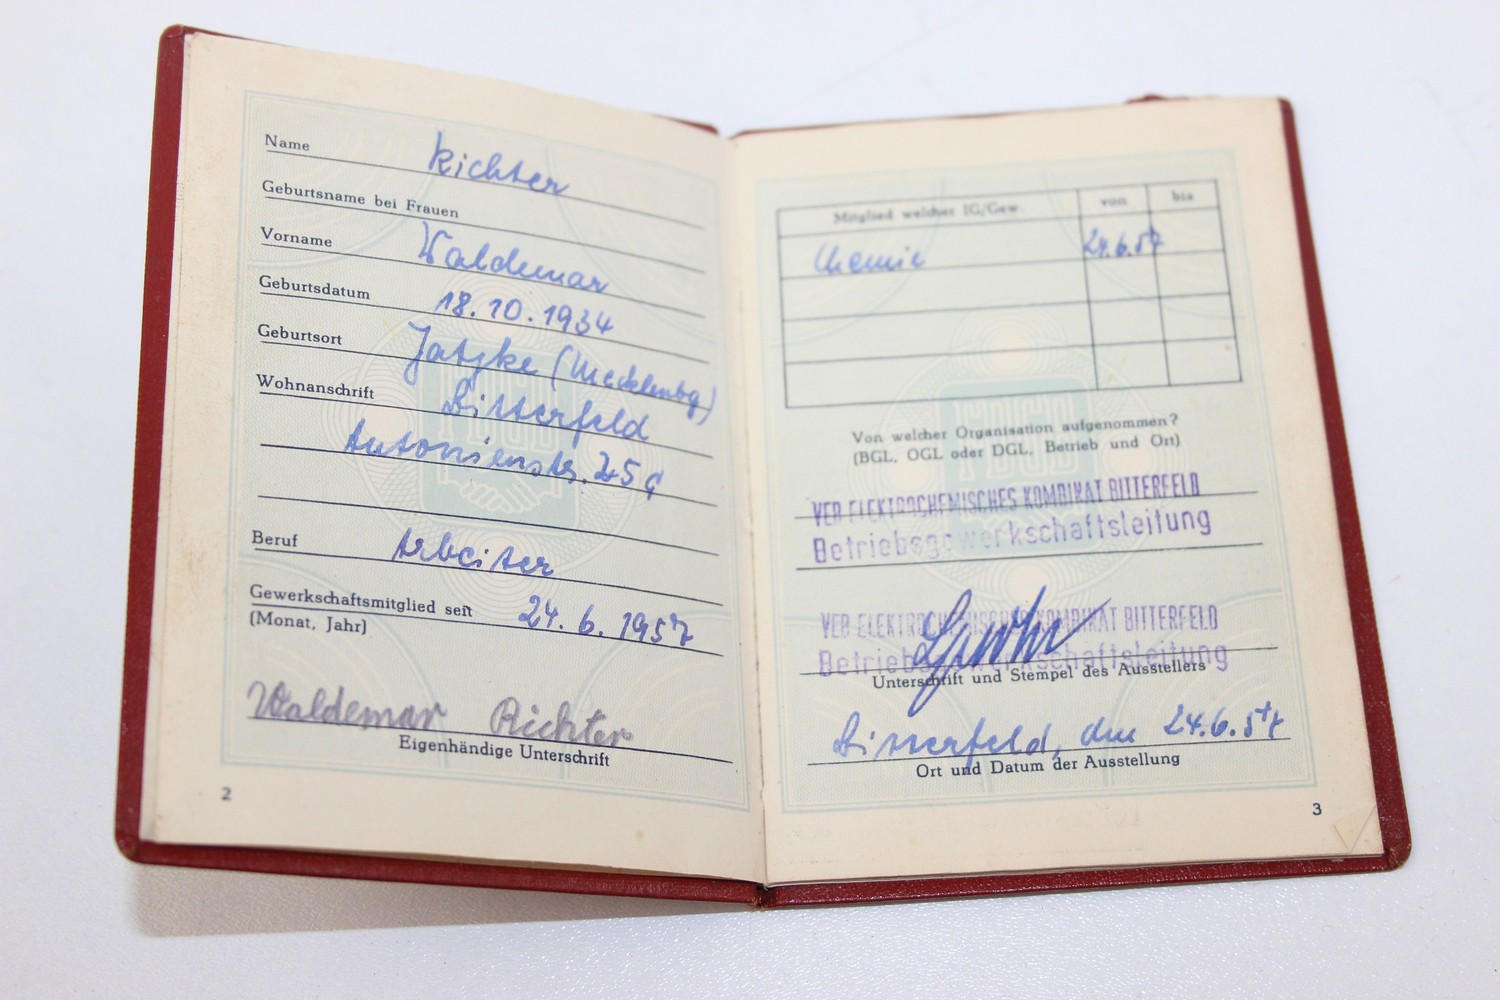 Name Richter
Geburtsname bei Frauen
Vorname Waldemar
Geburtsdatum 18.10.1934
Geburtsort Jatzke (Mecklenbg)
Wohnanschrift Bitterfeld
Antonienstr. 25c
Beruf Arbeiter
Gewerkschaftsmitglied seit 24.6.1957
(Monat, Jahr)
Waldemar Richter
Eigenhändige Unterschrift
2
Mitglied welcher IG/Gew. von bis
Chemie 24.6.57
Von welcher Organisation aufgenommen?
(BGL, OGL oder DGL, Betrieb und Ort)
VEB ELEKTROCHEMISCHES KOMBINAT BITTERFELD
Betriebsgewerkschaftsleitung
VEB ELEKTROCHEMISCHES KOMBINAT BITTERFELD
Betriebsgewerkschaftsleitung
Unterschrift und Stempel des Ausstellers
Bitterfeld, den 24.6.57
Ort und Datum der Ausstellung
3
FDGB
FDGB